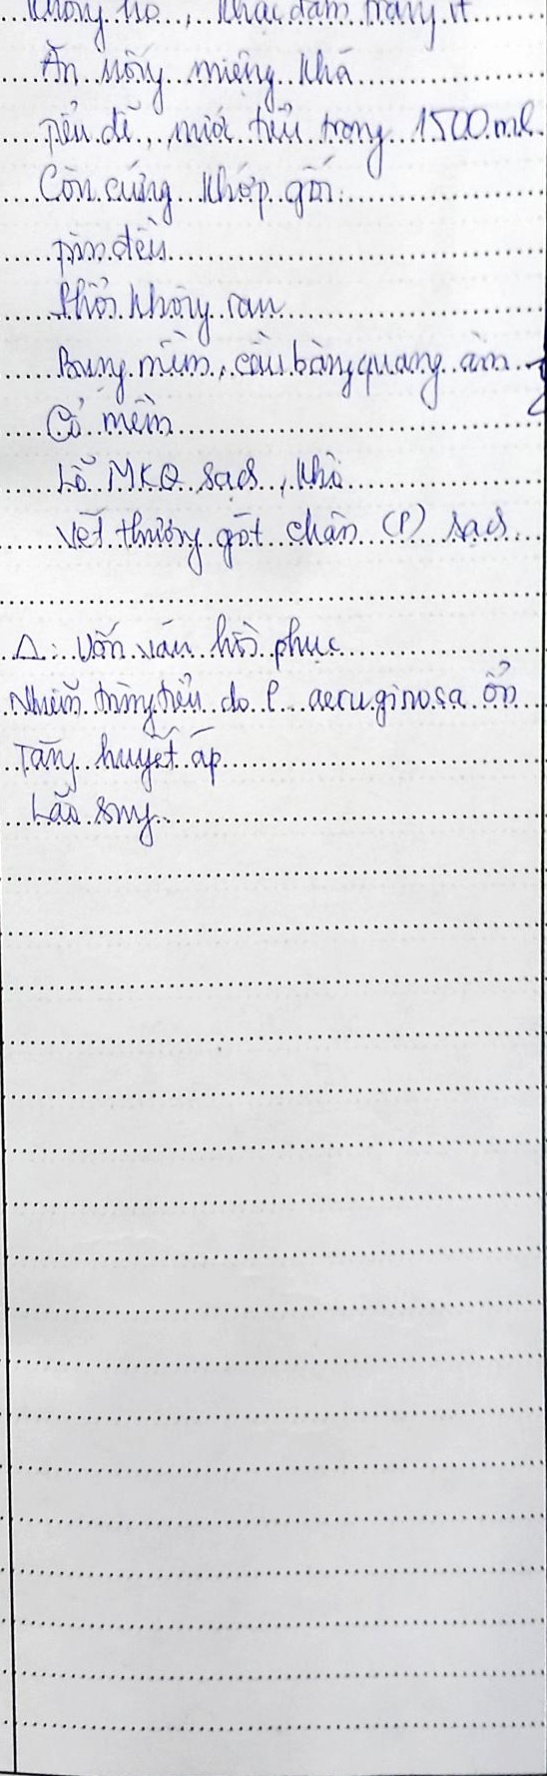 Không ho, khạc đàm trắng ít
Ăn uống miệng khá
Tiểu dễ, nước tiểu trong 1500ml
Còn cứng khớp gối
Tim đều
Phổi không ran
Bụng mềm, cầu bàng quang âm
Cổ mềm
Lỗ MKQ sạch, khô
Vết thương gót chân (P) sạch
Δ: Uốn ván hồi phục
Nhiễm trùng tiểu do P. aeruginosa ổn
Tăng huyết áp
Lão suy